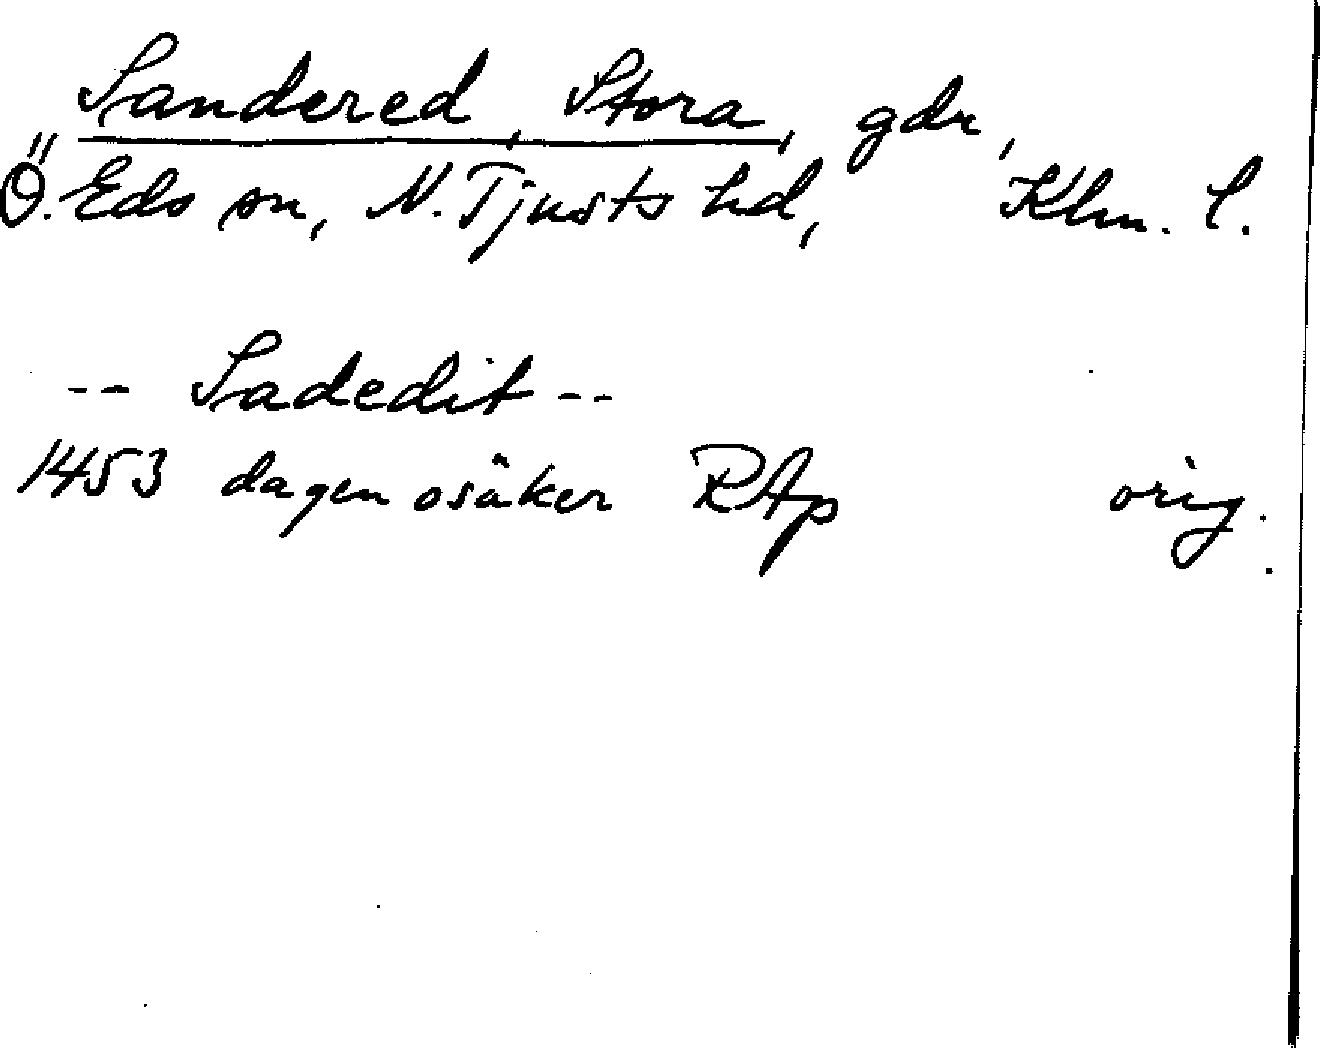 Sandered, Stora, gdr,
Ö. Eds sn, N. Tjusts hd, Klm. l.
-- Sadedit --
1453 dagen osäker RAp orig.